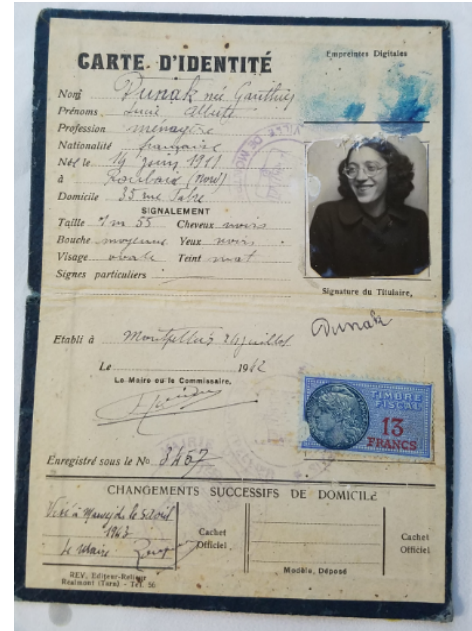 CARTE D'IDENTITÉ
Empreintes Digitales
Nom Dunak née Gauthier
Prénoms Lucie Alberte
Profession ménagère
Nationalité française
Né le 14 juin 1911
à Roubaix (Nord)
Domicile 35 rue
SIGNALEMENT
Taille 1m 55 Cheveux noirs
Bouche moyenne Yeux noirs
Visage ovale Teint mat
Signes particuliers
Signature du Titulaire,
Dunak
Etabli à Montpellier 24 juillet
Le 1942
Le Maire ou le Commissaire,
TIMBRE
FISCAL
13
FRANCS
Enregistré sous le No 3457
CHANGEMENTS SUCCESSIFS DE DOMICILE
Visé à le 5 avril
1943
Le Maire
Cachet
Officiel
Cachet
Officiel
Modèle, Déposé
REY, Editeur-Relieur
Realmont (Tarn) - Tél. 56